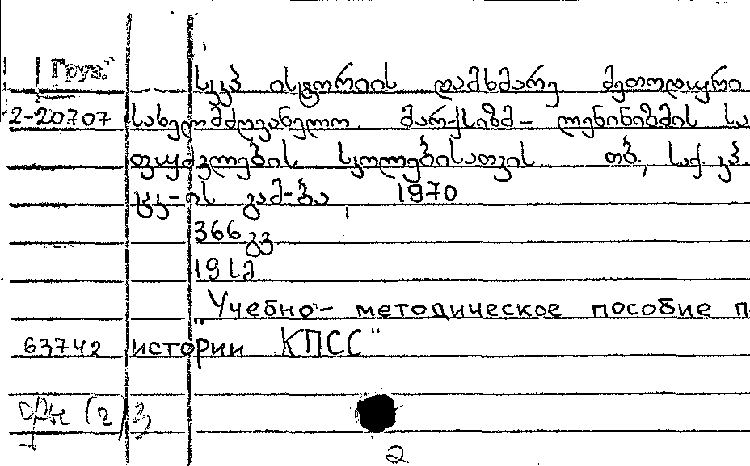 Груз.
სკკპ ისტორიის დამხმარე მეთოდური
2-20707 სახელმძღვანელო. მარქსიზმ- ლენინიზმის სა
ფუძვლების სკოლებისათვის თბ., საქ. კპ.
ცკ-ის გამ-ბა, 1970
366 გვ
19 სმ
"Учебно- методическое пособие п
63742 истории КПСС"
(2)
2